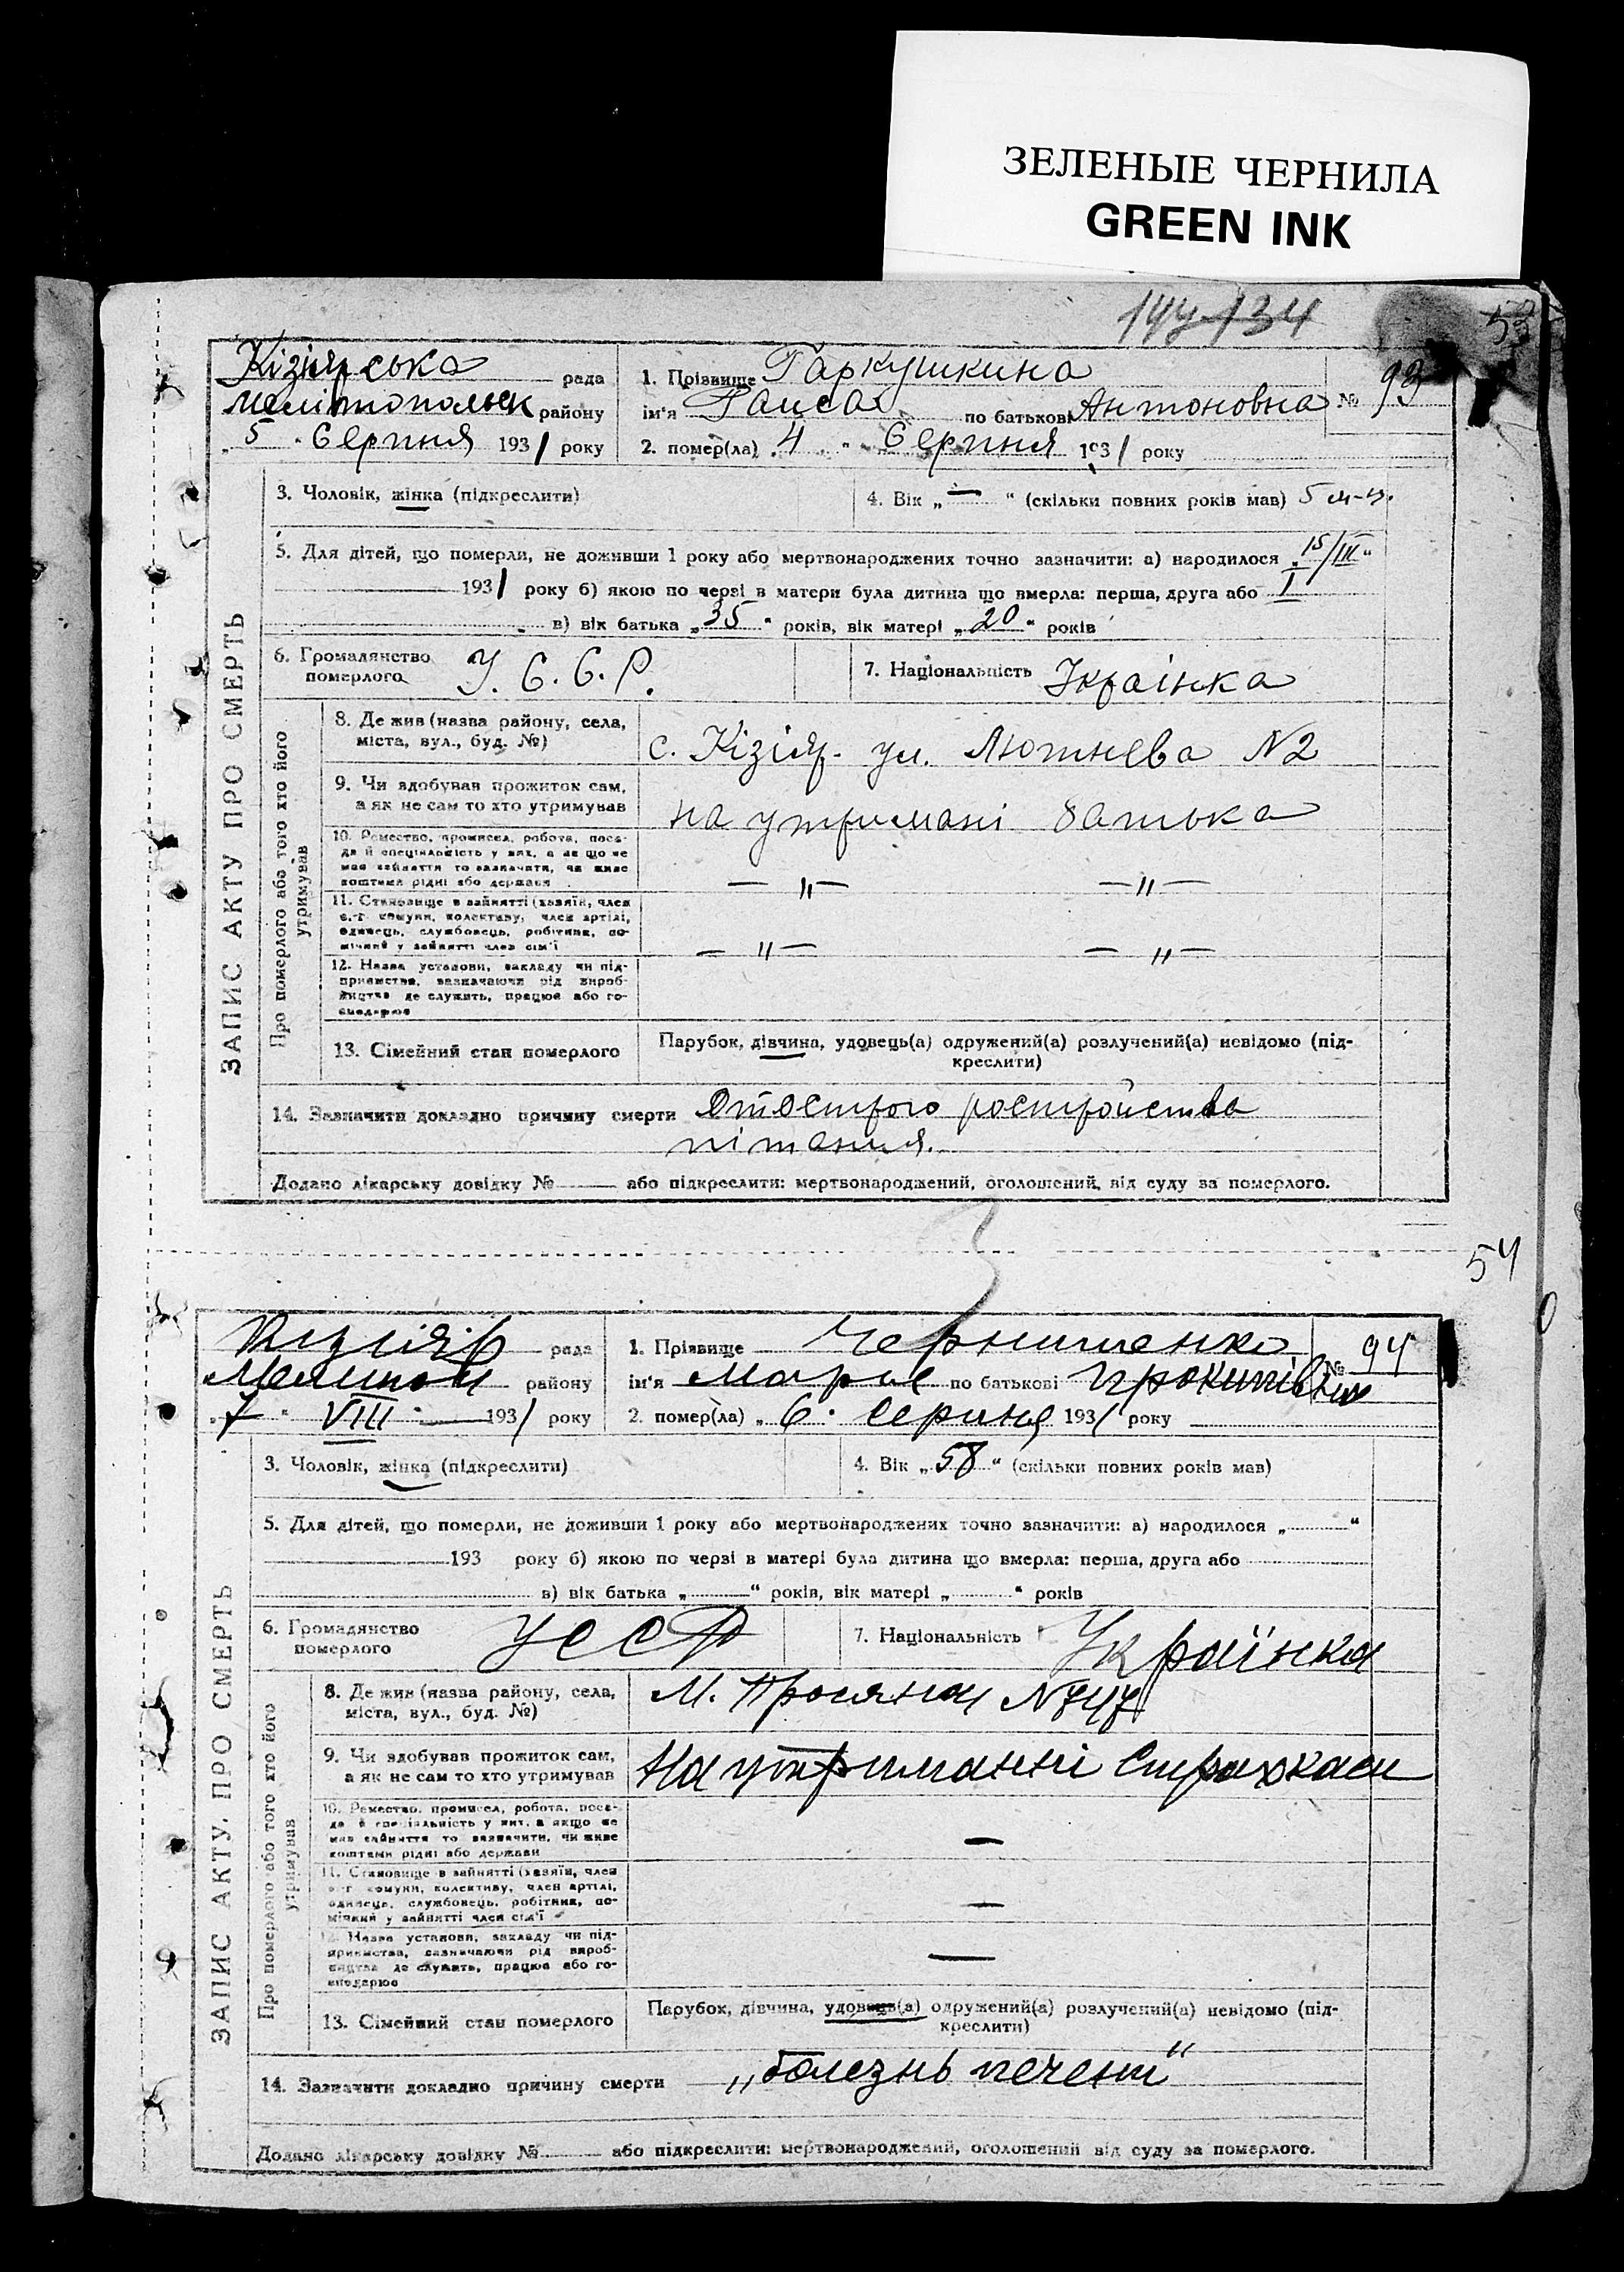 ЗЕЛЕНЫЕ ЧЕРНИЛА
GREEN INK
134
53
Кізіярська рада
мелітопольск району
„ 5 " Серпня 1931 року
1. Прізвище Гаркушкина
№ 93
ім'я Раиса по батькові Антоновна
2. помер(ла) „ 4 " Серпня 1931 року
3. Чоловік, жінка (підкреслити)
4. Вік „ — " (скільки повних років мав) 5 м-ц.
5. Для дітей, що померли, не доживши 1 року або мертвонароджених точно зазначити: а) народилося „ 15/III "
1931 року б) якою по черзі в матери була дитина що вмерла: перша, друга або I
в) вік батька „ 35 " років, вік матері „ 20 " років
6. Громадянство
померлого
У. С. С. Р.
7. Національність Українка
ЗАПИС АКТУ ПРО СМЕРТЬ
Про померлого або того хто його
утримував
8. Де жив (назва району, села,
міста, вул., буд. №)
с. Кізіяр. ул. Лютнева N2
9. Чи здобував прожиток сам,
а як не сам то хто утримував
на утримані батька
10. Ремество, промисел, робота, поса-
да й спеціальність у них, а як що не
мав зайняття то зазначити, чи живе
коштами рідні або держави
— " — — " —
11. Становище в зайнятті (хазяїн, член
с.-г. комуни, колективу, член артілі,
одинець, службовець, робітник, по-
мічний у зайнятті член сім'ї
— " — — " —
12. Назва установи, закладу чи під-
приємства, зазначаючи рід вироб-
ництва де служить, працює або го-
сподарює
13. Сімейний стан померлого
Парубок, дівчина, удовець(а) одружений(а) розлучений(а) невідомо (під-
креслити)
14. Зазначити докладно причину смерти От острого расстройства
пітания.
Додано лікарську довідку № або підкреслити: мертвонароджений, оголошений, від суду за померлого.
54
Кізіяр рада
Мелитоп району
„ 7 " VIII 1931 року
1. Прізвище Чернишенко
№ 94
ім'я Мария по батькові Прокипівна
2. помер(ла) „ 6 " серпня 1931 року
3. Чоловік, жінка (підкреслити)
4. Вік „ 58 " (скільки повних років мав)
5. Для дітей, що померли, не доживши 1 року або мертвонароджених точно зазначити: а) народилося „ "
193 року б) якою по черзі в матері була дитина що вмерла: перша, друга або
в) вік батька „ " років, вік матері „ " років
6. Громадянство
померлого
УССР
7. Національність Українка
ЗАПИС АКТУ ПРО СМЕРТЬ
Про померлого або того хто його
утримував
8. Де жив (назва району, села,
міста, вул., буд. №)
М.
9. Чи здобував прожиток сам,
а як не сам то хто утримував
На утриманні Страхкаси
10. Ремество, промисел, робота, поса-
да й спеціальність у них, а якщо не
мав зайняття то зазначити, чи живе
коштами рідні або держави
—
11. Становище в зайнятті (хазяїн, член
с.-г. комуни, колективу, член артілі,
одинець, службовець, робітник, по-
мічний у зайнятті член сім'ї
—
12. Назва установи, закладу чи під-
приємства, зазначаючи рід вироб-
ництва де служить, працює або го-
сподарює
—
13. Сімейний стан померлого
Парубок, дівчина, удовець(а) одружений(а) розлучений(а) невідомо (під-
креслити)
14. Зазначити докладно причину смерти „болезнь печени"
Додано лікарську довідку № або підкреслити: мертвонароджений, оголошений від суду за померлого.